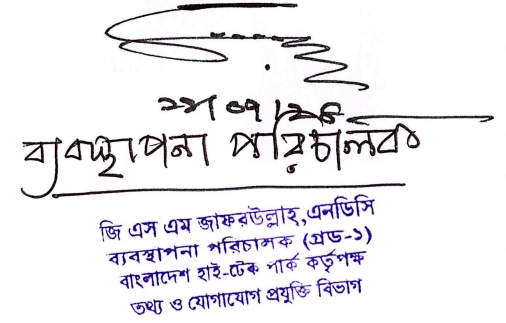 ব্যবস্থাপনা পরিচালক
জি এস এম জাফরউল্লাহ, এনডিসি
ব্যবস্থাপনা পরিচালক (গ্রেড-১)
বাংলাদেশ হাই-টেক পার্ক কর্তৃপক্ষ
তথ্য ও যোগাযোগ প্রযুক্তি বিভাগ